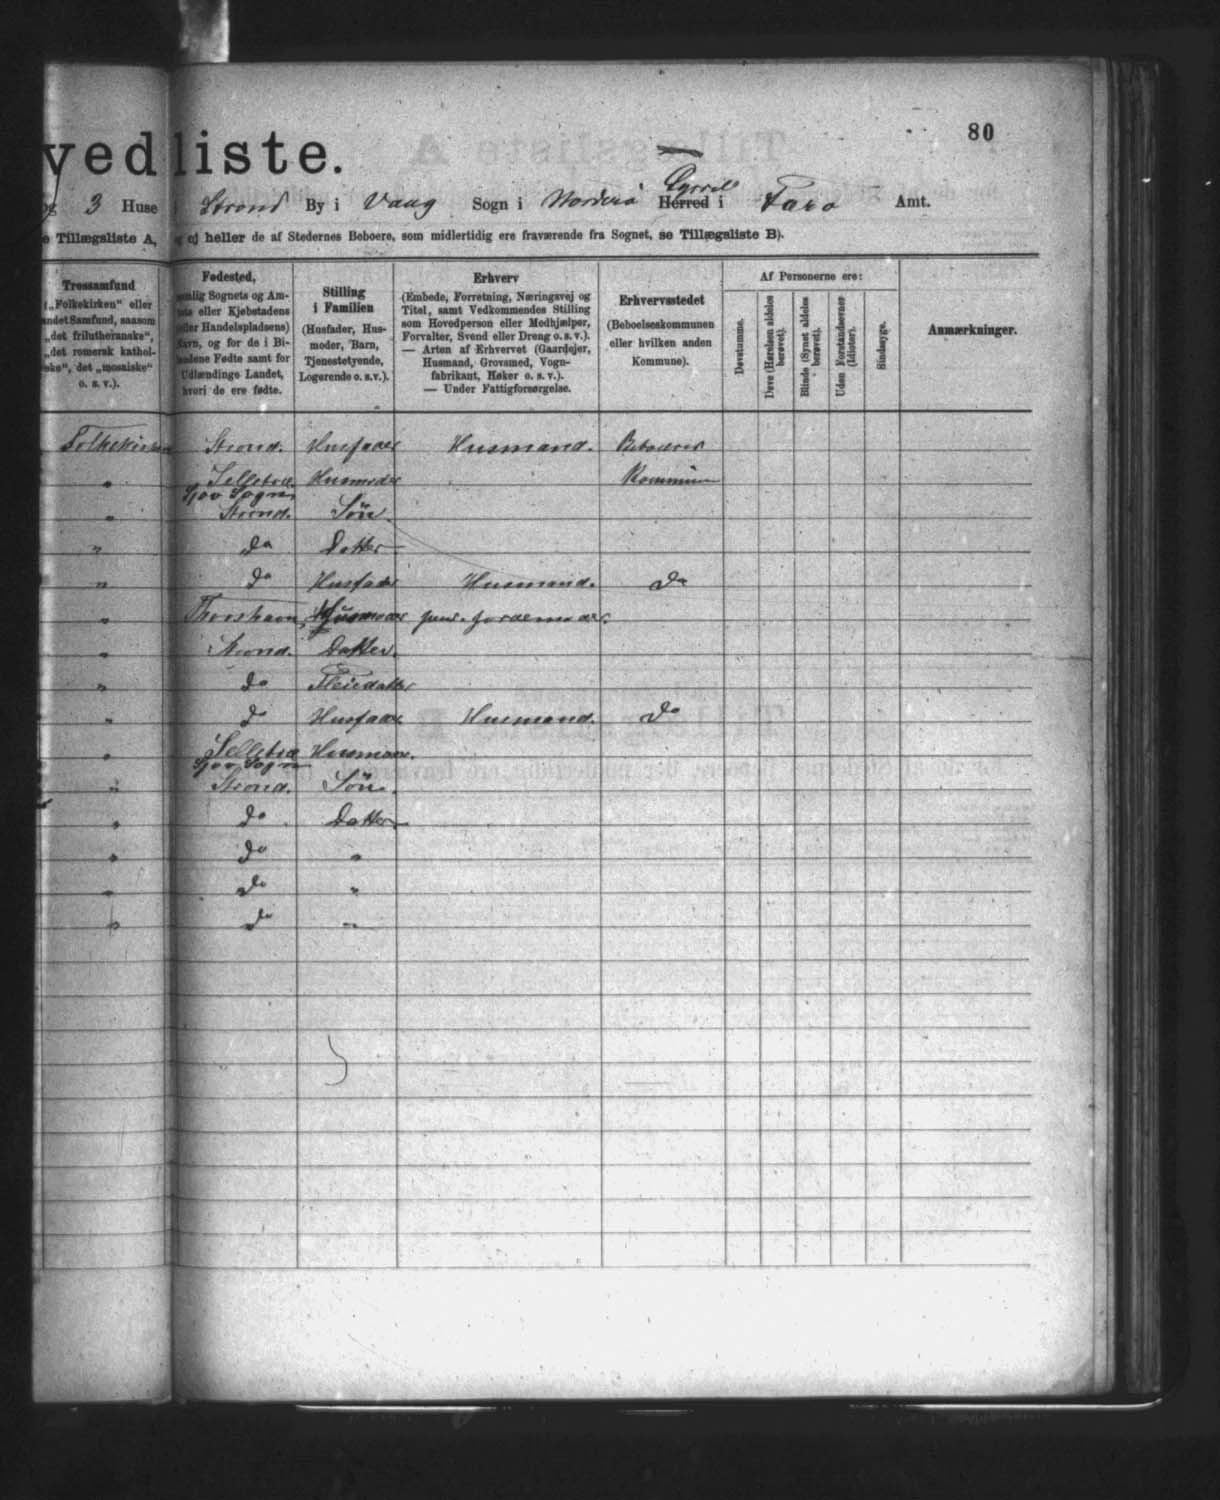 80
vedliste.
og 3 Huse i Strond By i Vaag Sogn i Norderø Syssel Herred i Færø Amt.
e Tillægsliste A, og ej heller de af Stedernes Beboere, som midlertidig ere fraværende fra Sognet, se Tillægsliste B).
Trossamfund
(„Folkekirken“ eller
andet Samfund, saasom
„det frilutheranske“,
„det romersk kathol-
ske“, det „mosaiske“
o. s. v.).
Fødested,
nemlig Sognets og Am-
tets eller Kjøbstadens
(eller Handelspladsens)
Navn, og for de i Bi-
landene Fødte samt for
Udlændinge Landet,
hvori de ere fødte.
Stilling
i Familien
(Husfader, Hus-
moder, Barn,
Tjenestetyende,
Logerende o. s. v.).
Erhverv
(Embede, Forretning, Næringsvej og
Titel, samt Vedkommendes Stilling
som Hovedperson eller Medhjælper,
Forvalter, Svend eller Dreng o. s. v.).
— Arten af Erhvervet (Gaardejer,
Husmand, Grovsmed, Vogn-
fabrikant, Høker o. s. v.).
— Under Fattigforsørgelse.
Erhvervsstedet
(Beboelseskommunen
eller hvilken anden
Kommune).
Af Personerne ere:
Døvstumme.
Døve (Hørelsen aldeles
berøvet).
Blinde (Synet aldeles
berøvet).
Uden Forstandsevner
(Idioter).
Sindssyge.
Anmærkninger.
Folkekirken Strond. Husfader Husmand. Beboelses
" Selletræ Husmoder Kommune
Sjov Sogn
" Strond. Søn
" do Datter
" do Husfader Husmand. do
" Thorshavn Husmoder Jordemoder.
" Strond. Datter.
" do Pleiedatter
" do Husfader Husmand. do
" Selletræ Husmoder.
Sjov Sogn
" Strond. Søn.
" do Datter
" do "
" do "
" do "